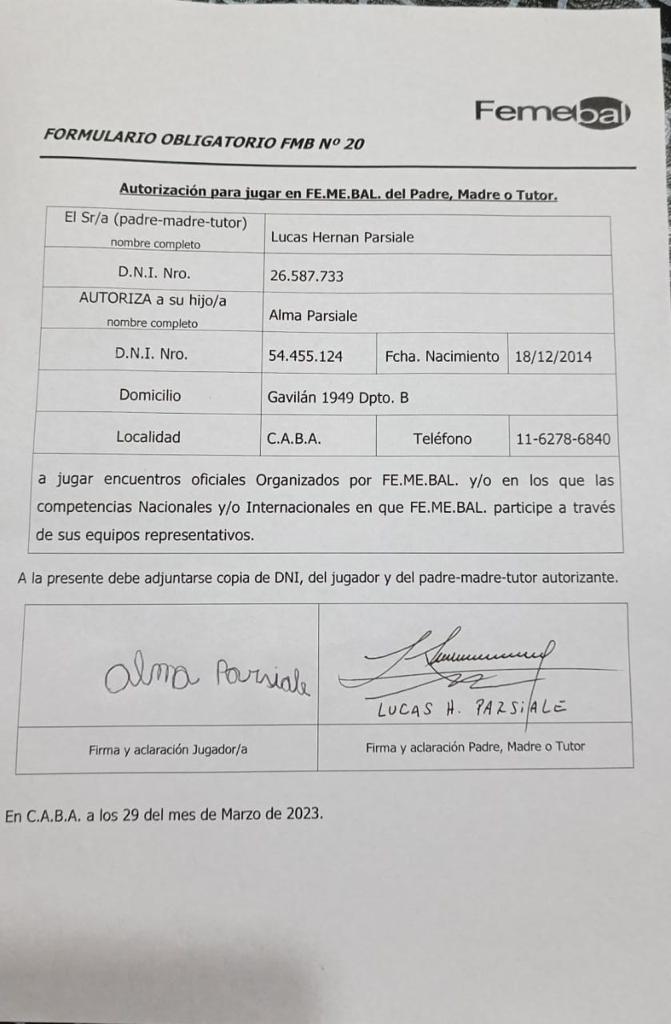 Femebal
FORMULARIO OBLIGATORIO FMB Nº 20
Autorización para jugar en FE.ME.BAL. del Padre, Madre o Tutor.
El Sr/a (padre-madre-tutor)
nombre completo
Lucas Hernan Parsiale
D.N.I. Nro.
26.587.733
AUTORIZA a su hijo/a
nombre completo
Alma Parsiale
D.N.I. Nro.
54.455.124
Fcha. Nacimiento
18/12/2014
Domicilio
Gavilán 1949 Dpto. B
Localidad
C.A.B.A.
Teléfono
11-6278-6840
a jugar encuentros oficiales Organizados por FE.ME.BAL. y/o en los que las
competencias Nacionales y/o Internacionales en que FE.ME.BAL. participe a través
de sus equipos representativos.
A la presente debe adjuntarse copia de DNI, del jugador y del padre-madre-tutor autorizante.
alma Parsiale
LUCAS H. PARSiALE
Firma y aclaración Jugador/a
Firma y aclaración Padre, Madre o Tutor
En C.A.B.A. a los 29 del mes de Marzo de 2023.